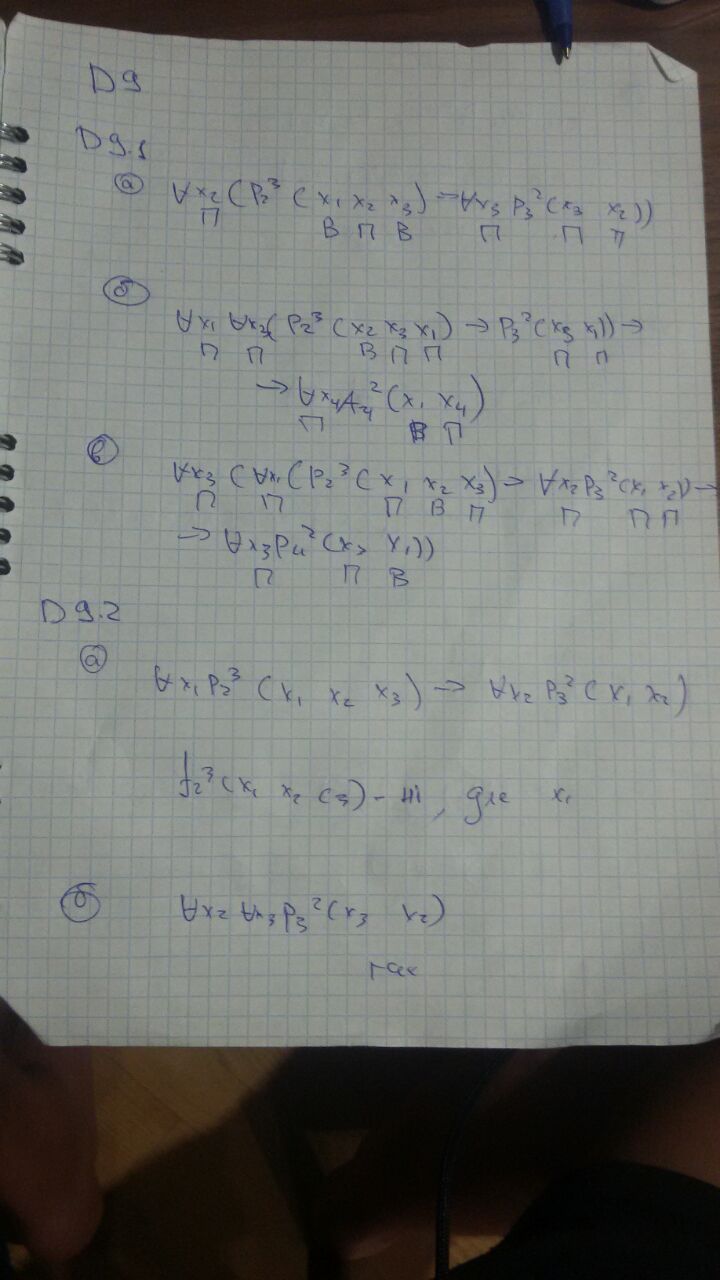 D9
D9.1
а ∀x₂ (P₂³ (x₁ x₂ x₃) → ∀x₃ P₃² (x₃ x₂))
П В П В П П П
б ∀x₁ ∀x₃ (P₂³ (x₂ x₃ x₁) → P₃² (x₃ x₁)) →
П П В П П П П
→ ∀x₄ A₄² (x₁ x₄)
П В П
в ∀x₃ (∀x₁ (P₂³ (x₁ x₂ x₃) → ∀x₂ P₃² (x₁ x₂)) →
П П П В П П П П
→ ∀x₃ P₄² (x₃ x₁))
П П В
D9.2
а ∀x₁ P₂³ (x₁ x₂ x₃) → ∀x₂ P₃² (x₁ x₂)
f₂³ (x₁ x₂ c₃) - ні, для x₁
б ∀x₂ ∀x₃ P₃² (x₃ x₂)
так